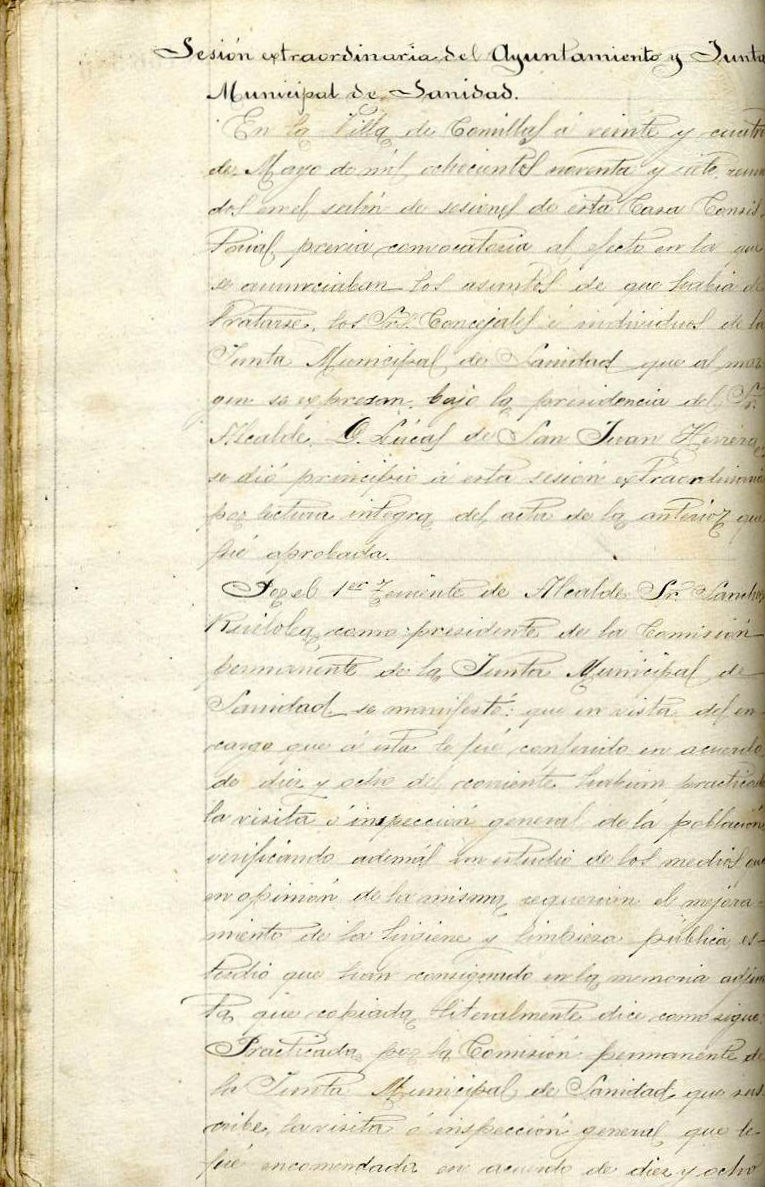 Sesión extraordinaria del Ayuntamiento y Junta
Municipal de Sanidad.
En la Villa de Comillas á veinte y cuatro
de Mayo de mil ochocientos noventa y siete, reuni
dos en el salón de sesiones de esta Casa Consis-
torial previa convocatoria al efecto en la que
se anunciaban los asuntos de que había de
tratarse, los Srs. Concejales é individuos de la
Junta Municipal de Sanidad que al mar
gen se expresan, bajo la presidencia del Sr.
Alcalde, D. Lúcas de San Juan Herrera,
se dió principio á esta sesión extraordinaria
por lectura integra del acta de la anterior que
fué aprobada.
Por el 1er Teniente de Alcalde Sr. Sanchez
como presidente de la Comisión
permanente de la Junta Municipal de
Sanidad se manifestó: que en vista del en-
cargo que á esta le fué conferido en acuerdo
de diez y ocho del corriente habian practicado
la visita é inspección general de la población,
verificando además un estudio de los medios que
en opinión de la misma requerian el mejora-
miento de la higiene y limpieza pública es-
tudio que han consignado en la memoria adjun
ta que copiada literalmente dice como sigue:
Practicada por la Comisión permanente de
la Junta Municipal de Sanidad que sus
cribe, la visita é inspección general que le
fué encomendada en acuerdo de diez y ocho